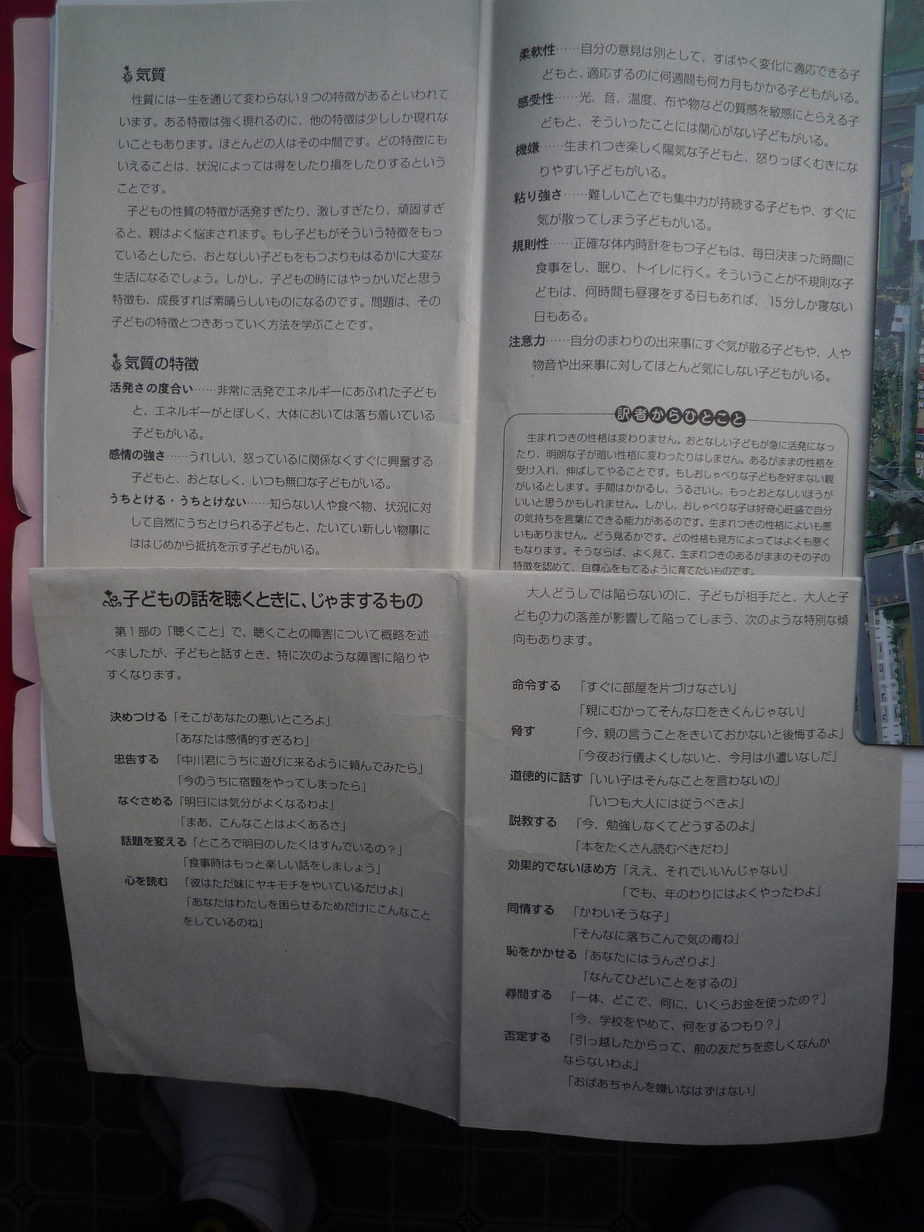 気質
性質には一生を通じて変わらない9つの特徴があるといわれて
います。ある特徴は強く現れるのに、他の特徴は少ししか現れな
いこともあります。ほとんどの人はその中間です。どの特徴にも
いえることは、状況によっては得をしたり損をしたりするという
ことです。
子どもの性質の特徴が活発すぎたり、激しすぎたり、頑固すぎ
ると、親はよく悩まされます。もし子どもがそういう特徴をもっ
ているとしたら、おとなしい子どもをもつよりもはるかに大変な
生活になるでしょう。しかし、子どもの時にはやっかいだと思う
特徴も、成長すれば素晴らしいものになるのです。問題は、その
子どもの特徴とつきあっていく方法を学ぶことです。
気質の特徴
活発さの度合い……非常に活発でエネルギーにあふれた子ども
と、エネルギーがとぼしく、大体においては落ち着いている
子どもがいる。
感情の強さ……うれしい、怒っているに関係なくすぐに興奮する
子どもと、おとなしく、いつも無口な子どもがいる。
うちとける・うちとけない……知らない人や食べ物、状況に対
して自然にうちとけられる子どもと、たいてい新しい物事に
ははじめから抵抗を示す子どもがいる。
柔軟性……自分の意見は別として、すばやく変化に適応できる子
どもと、適応するのに何週間も何カ月もかかる子どもがいる。
感受性……光、音、温度、布や物などの質感を敏感にとらえる子
どもと、そういったことには関心がない子どもがいる。
機嫌……生まれつき楽しく陽気な子どもと、怒りっぽくむきにな
りやすい子どもがいる。
粘り強さ……難しいことでも集中力が持続する子どもや、すぐに
気が散ってしまう子どもがいる。
規則性……正確な体内時計をもつ子どもは、毎日決まった時間に
食事をし、眠り、トイレに行く。そういうことが不規則な子
どもは、何時間も昼寝をする日もあれば、15分しか寝ない
日もある。
注意力……自分のまわりの出来事にすぐ気が散る子どもや、人や
物音や出来事に対してほとんど気にしない子どもがいる。
訳者からひとこと
生まれつきの性格は変わりません。おとなしい子どもが急に活発になっ
たり、明朗な子が暗い性格に変わったりはしません。あるがままの性格を
受け入れ、伸ばしてやることです。もしおしゃべりな子どもを好まない親
がいるとします。手間はかかるし、うるさいし、もっとおとなしいほうが
いいと思うかもしれません。しかし、おしゃべりな子は好奇心旺盛で自分
の気持ちを言葉にできる能力があるのです。生まれつきの性格によいも悪
いもありません。どう見るかです。どの性格も見方によってはよくも悪く
もなります。そうならば、よく見て、生まれつきのあるがままのその子の
特徴を認めて、自尊心をもてるように育てたいものです。
子どもの話を聴くときに、じゃまするもの
第1部の「聴くこと」で、聴くことの障害について概略を述
べましたが、子どもと話すとき、特に次のような障害に陥りや
すくなります。
決めつける「そこがあなたの悪いところよ」
「あなたは感情的すぎるわ」
忠告する 「中川君にうちに遊びに来るように頼んでみたら」
「今のうちに宿題をやってしまったら」
なぐさめる「明日には気分がよくなるわよ」
「まあ、こんなことはよくあるさ」
話題を変える「ところで明日のしたくはすんでいるの?」
「食事時はもっと楽しい話をしましょう」
心を読む 「彼はただ妹にヤキモチをやいているだけよ」
「あなたはわたしを困らせるためだけにこんなこと
をしているのね」
大人どうしでは陥らないのに、子どもが相手だと、大人と子
どもの力の落差が影響して陥ってしまう、次のような特別な傾
向もあります。
命令する 「すぐに部屋を片づけなさい」
「親にむかってそんな口をきくんじゃない」
脅す 「今、親の言うことをきいておかないと後悔するよ」
「今夜お行儀よくしないと、今月は小遣いなしだ」
道徳的に話す「いい子はそんなことを言わないの」
「いつも大人には従うべきよ」
説教する 「今、勉強しなくてどうするのよ」
「本をたくさん読むべきだわ」
効果的でないほめ方「ええ、それでいいんじゃない」
「でも、年のわりにはよくやったわよ」
同情する 「かわいそうな子」
「そんなに落ちこんで気の毒ね」
恥をかかせる「あなたにはうんざりよ」
「なんてひどいことをするの」
尋問する 「一体、どこで、何に、いくらお金を使ったの?」
「今、学校をやめて、何をするつもり?」
否定する 「引っ越したからって、前の友だちを恋しくなんか
ならないわよ」
「おばあちゃんを嫌いなはずはない」